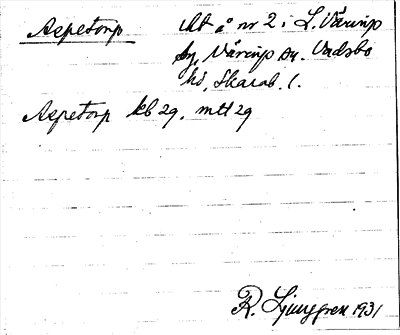 Aspetorp    lht å nr 2 i L. Vårup
by, Vårup sn. Vadsbo
hd, Skarab. l.
Aspetorp kb 29. mtl 29
R. Ljunggren 1931